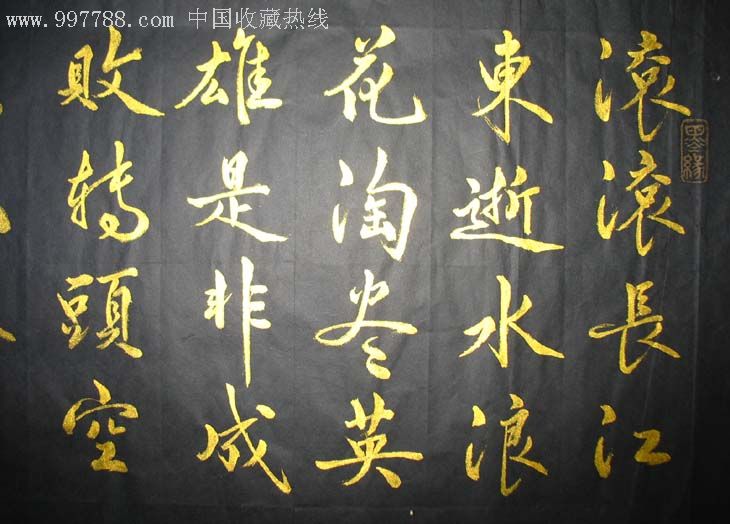 www.997788.com 中国收藏热线
滚滚長江
東逝水浪
花淘尽英
雄是非成
敗转頭空
墨缘